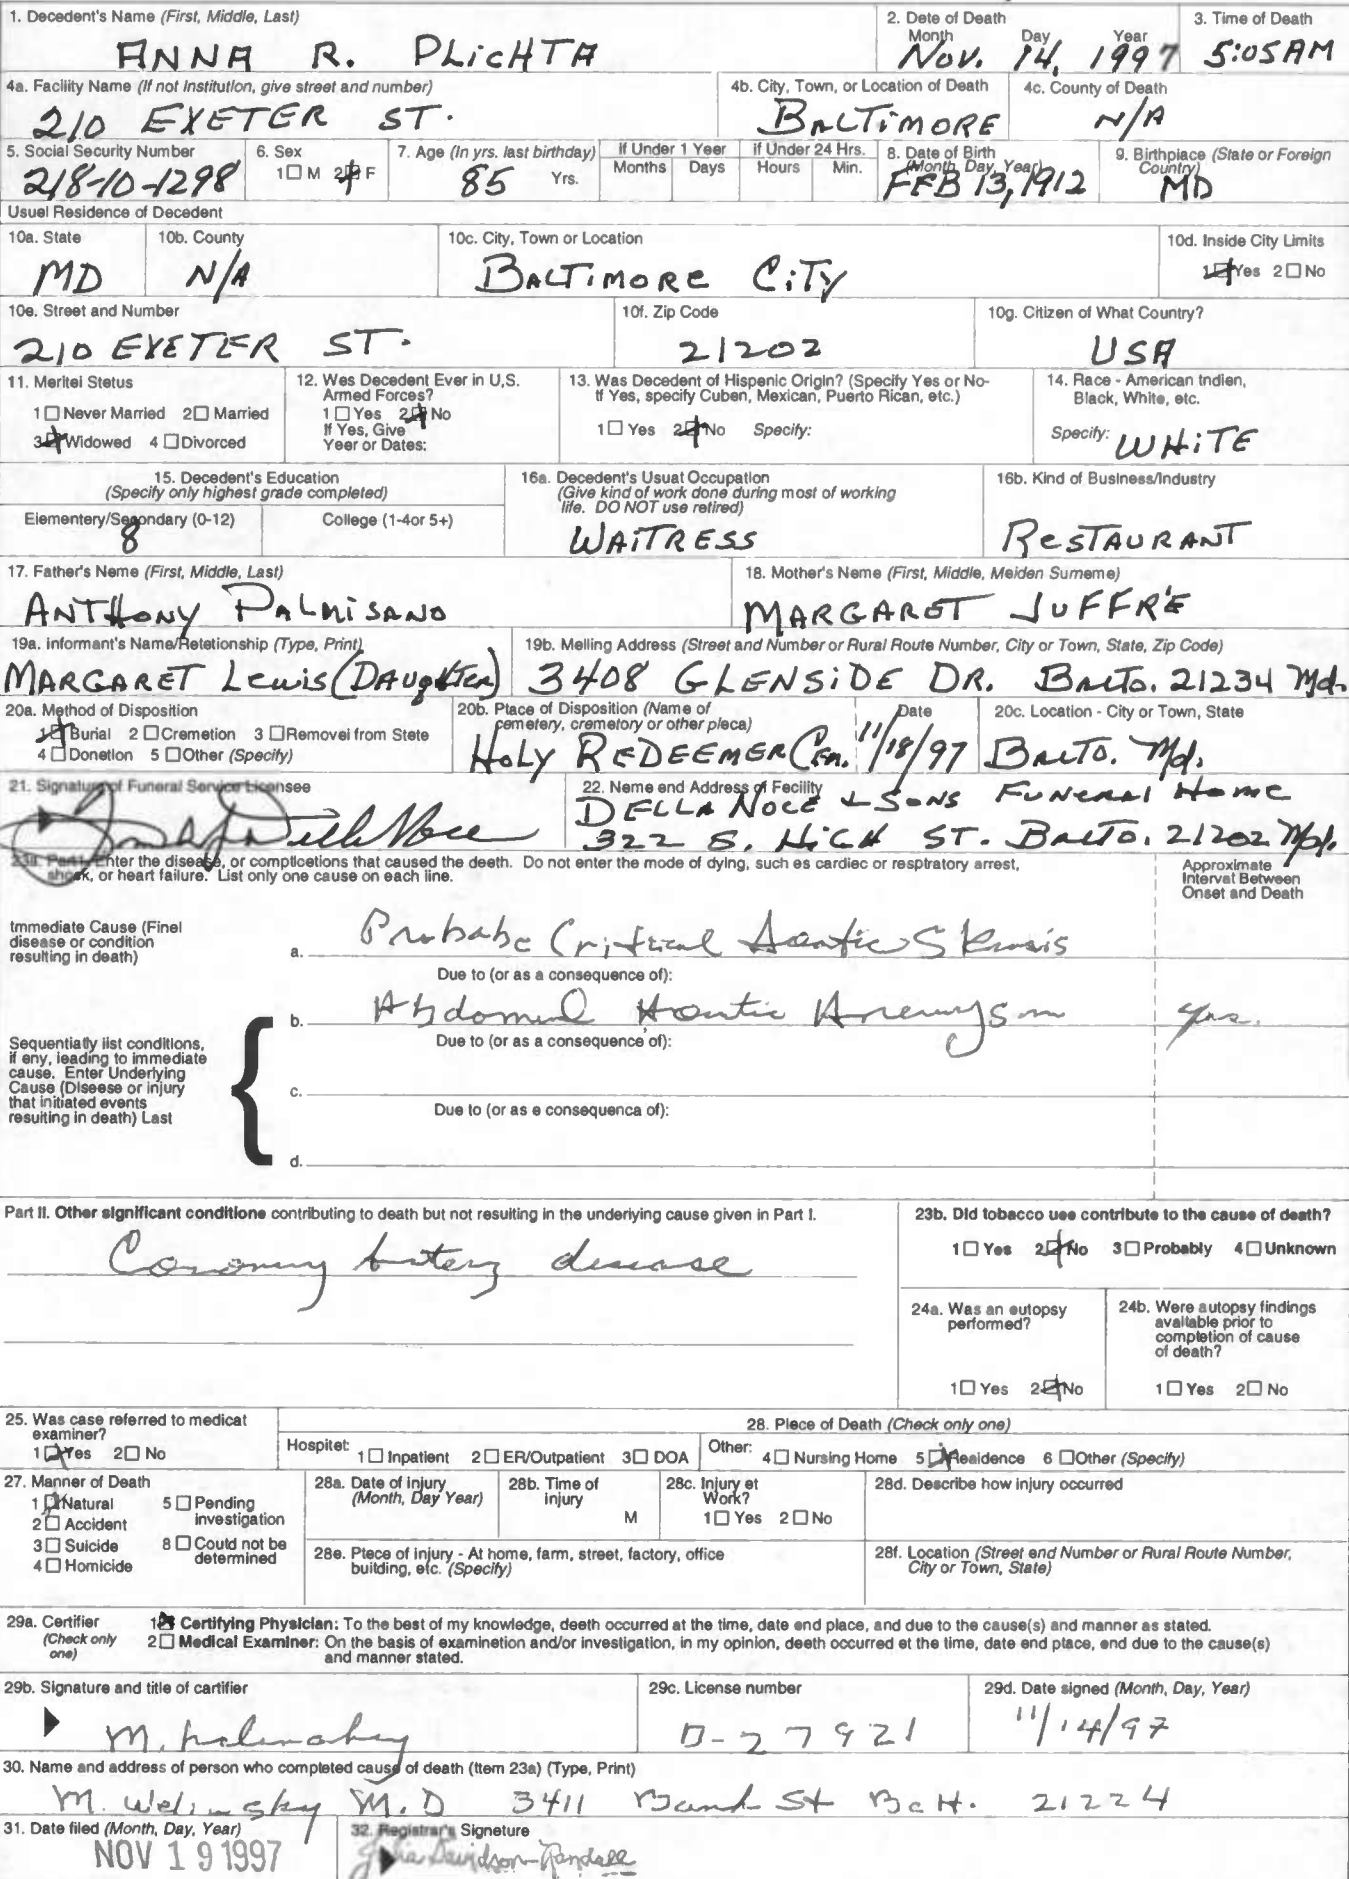 1. Decedent's Name (First, Middle, Last)
ANNA R. PLICHTA
2. Date of Death
Month Day Year
NOV. 14, 1997
3. Time of Death
5:05 AM
4a. Facility Name (If not Institution, give street and number)
210 EXETER ST.
4b. City, Town, or Location of Death
BALTIMORE
4c. County of Death
N/A
5. Social Security Number
218-10-1298
6. Sex
1☐ M 2☒ F
7. Age (In yrs. last birthday)
85 Yrs.
If Under 1 Year
Months Days
If Under 24 Hrs.
Hours Min.
8. Date of Birth
(Month, Day, Year)
FEB 13, 1912
9. Birthplace (State or Foreign
Country)
MD
Usual Residence of Decedent
10a. State
MD
10b. County
N/A
10c. City, Town or Location
BALTIMORE CITY
10d. Inside City Limits
1☒ Yes 2☐ No
10e. Street and Number
210 EXETER ST.
10f. Zip Code
21202
10g. Citizen of What Country?
USA
11. Marital Status
1☐ Never Married 2☐ Married
3☒ Widowed 4☐ Divorced
12. Was Decedent Ever in U.S.
Armed Forces?
1☐ Yes 2☒ No
If Yes, Give
Year or Dates:
13. Was Decedent of Hispanic Origin? (Specify Yes or No-
If Yes, specify Cuban, Mexican, Puerto Rican, etc.)
1☐ Yes 2☒ No Specify:
14. Race - American Indian,
Black, White, etc.
Specify: WHITE
15. Decedent's Education
(Specify only highest grade completed)
Elementary/Secondary (0-12)
8
College (1-4or 5+)
16a. Decedent's Usual Occupation
(Give kind of work done during most of working
life. DO NOT use retired)
WAITRESS
16b. Kind of Business/Industry
RESTAURANT
17. Father's Name (First, Middle, Last)
ANTHONY PALMISANO
18. Mother's Name (First, Middle, Maiden Surname)
MARGARET JUFFRE
19a. Informant's Name/Relationship (Type, Print)
MARGARET Lewis (DAUGHTER)
19b. Mailing Address (Street and Number or Rural Route Number, City or Town, State, Zip Code)
3408 GLENSIDE DR. BALTO. 21234 Md.
20a. Method of Disposition
1☒ Burial 2☐ Cremation 3☐ Removal from State
4☐ Donation 5☐ Other (Specify)
20b. Place of Disposition (Name of
cemetery, crematory or other place)
HOLY REDEEMER CEM.
Date
11/18/97
20c. Location - City or Town, State
BALTO. Md.
21. Signature of Funeral Service Licensee
22. Name and Address of Facility
DELLA NOCE & SONS FUNERAL HOME
322 S. HIGH ST. BALTO. 21202 Md.
23a. Part I. Enter the disease, or complications that caused the death. Do not enter the mode of dying, such as cardiac or respiratory arrest,
shock, or heart failure. List only one cause on each line.
Approximate
Interval Between
Onset and Death
Immediate Cause (Final
disease or condition
resulting in death)
a. Probabe Critical Aortic Stenosis
Due to (or as a consequence of):
Sequentially list conditions,
if any, leading to immediate
cause. Enter Underlying
Cause (Disease or injury
that initiated events
resulting in death) Last
b. Abdominal Aortic Aneurysm yrs.
Due to (or as a consequence of):
c.
Due to (or as a consequence of):
d.
Part II. Other significant conditions contributing to death but not resulting in the underlying cause given in Part I.
Coronary Artery disease
23b. Did tobacco use contribute to the cause of death?
1☐ Yes 2☒ No 3☐ Probably 4☐ Unknown
24a. Was an autopsy
performed?
1☐ Yes 2☒ No
24b. Were autopsy findings
available prior to
completion of cause
of death?
1☐ Yes 2☐ No
25. Was case referred to medical
examiner?
1☒ Yes 2☐ No
28. Place of Death (Check only one)
Hospital: 1☐ Inpatient 2☐ ER/Outpatient 3☐ DOA
Other: 4☐ Nursing Home 5☒ Residence 6☐ Other (Specify)
27. Manner of Death
1☒ Natural 5☐ Pending
investigation
2☐ Accident
3☐ Suicide 8☐ Could not be
determined
4☐ Homicide
28a. Date of injury
(Month, Day Year)
28b. Time of
injury
M
28c. Injury at
Work?
1☐ Yes 2☐ No
28d. Describe how injury occurred
28e. Place of injury - At home, farm, street, factory, office
building, etc. (Specify)
28f. Location (Street and Number or Rural Route Number,
City or Town, State)
29a. Certifier
(Check only
one)
1☒ Certifying Physician: To the best of my knowledge, death occurred at the time, date and place, and due to the cause(s) and manner as stated.
2☐ Medical Examiner: On the basis of examination and/or investigation, in my opinion, death occurred at the time, date and place, and due to the cause(s)
and manner stated.
29b. Signature and title of certifier
M.
29c. License number
D-27921
29d. Date signed (Month, Day, Year)
11/14/97
30. Name and address of person who completed cause of death (Item 23a) (Type, Print)
M. Welinsky M.D 3411 St 21224
31. Date filed (Month, Day, Year)
NOV 19 1997
32. Registrar's Signature
Julia Davidson-Randall